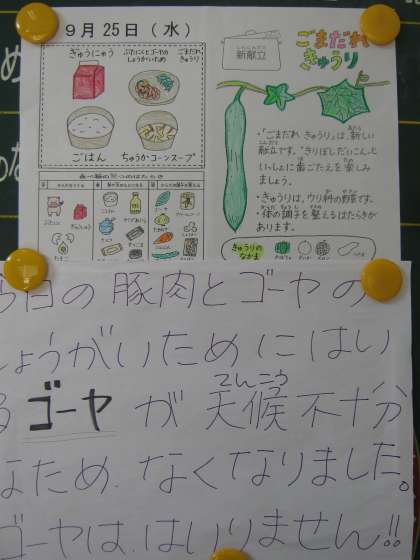 9月25日(水)
ぎゅうにゅう
ぶたにくとゴーヤの
しょうがいため
ごまだれ
きゅうり
ごはん
ちゅうかコーンスープ
新献立
ごまだれ
きゅうり
・「ごまだれ きゅうり」は、新しい
献立です。“きりぼしだいこん”と
いっしょに歯ごたえを楽しみ
ましょう。
・きゅうりは、ウリ科の野菜です。
・体の調子を整えるはたらきが
あります。
きゅうりの
なかま
日の豚肉とゴーヤの
しょうがいためにはい
る ゴーヤ が 天候不十分
てんこう
なため、なくなりました。
ゴーヤは、はいりません!!